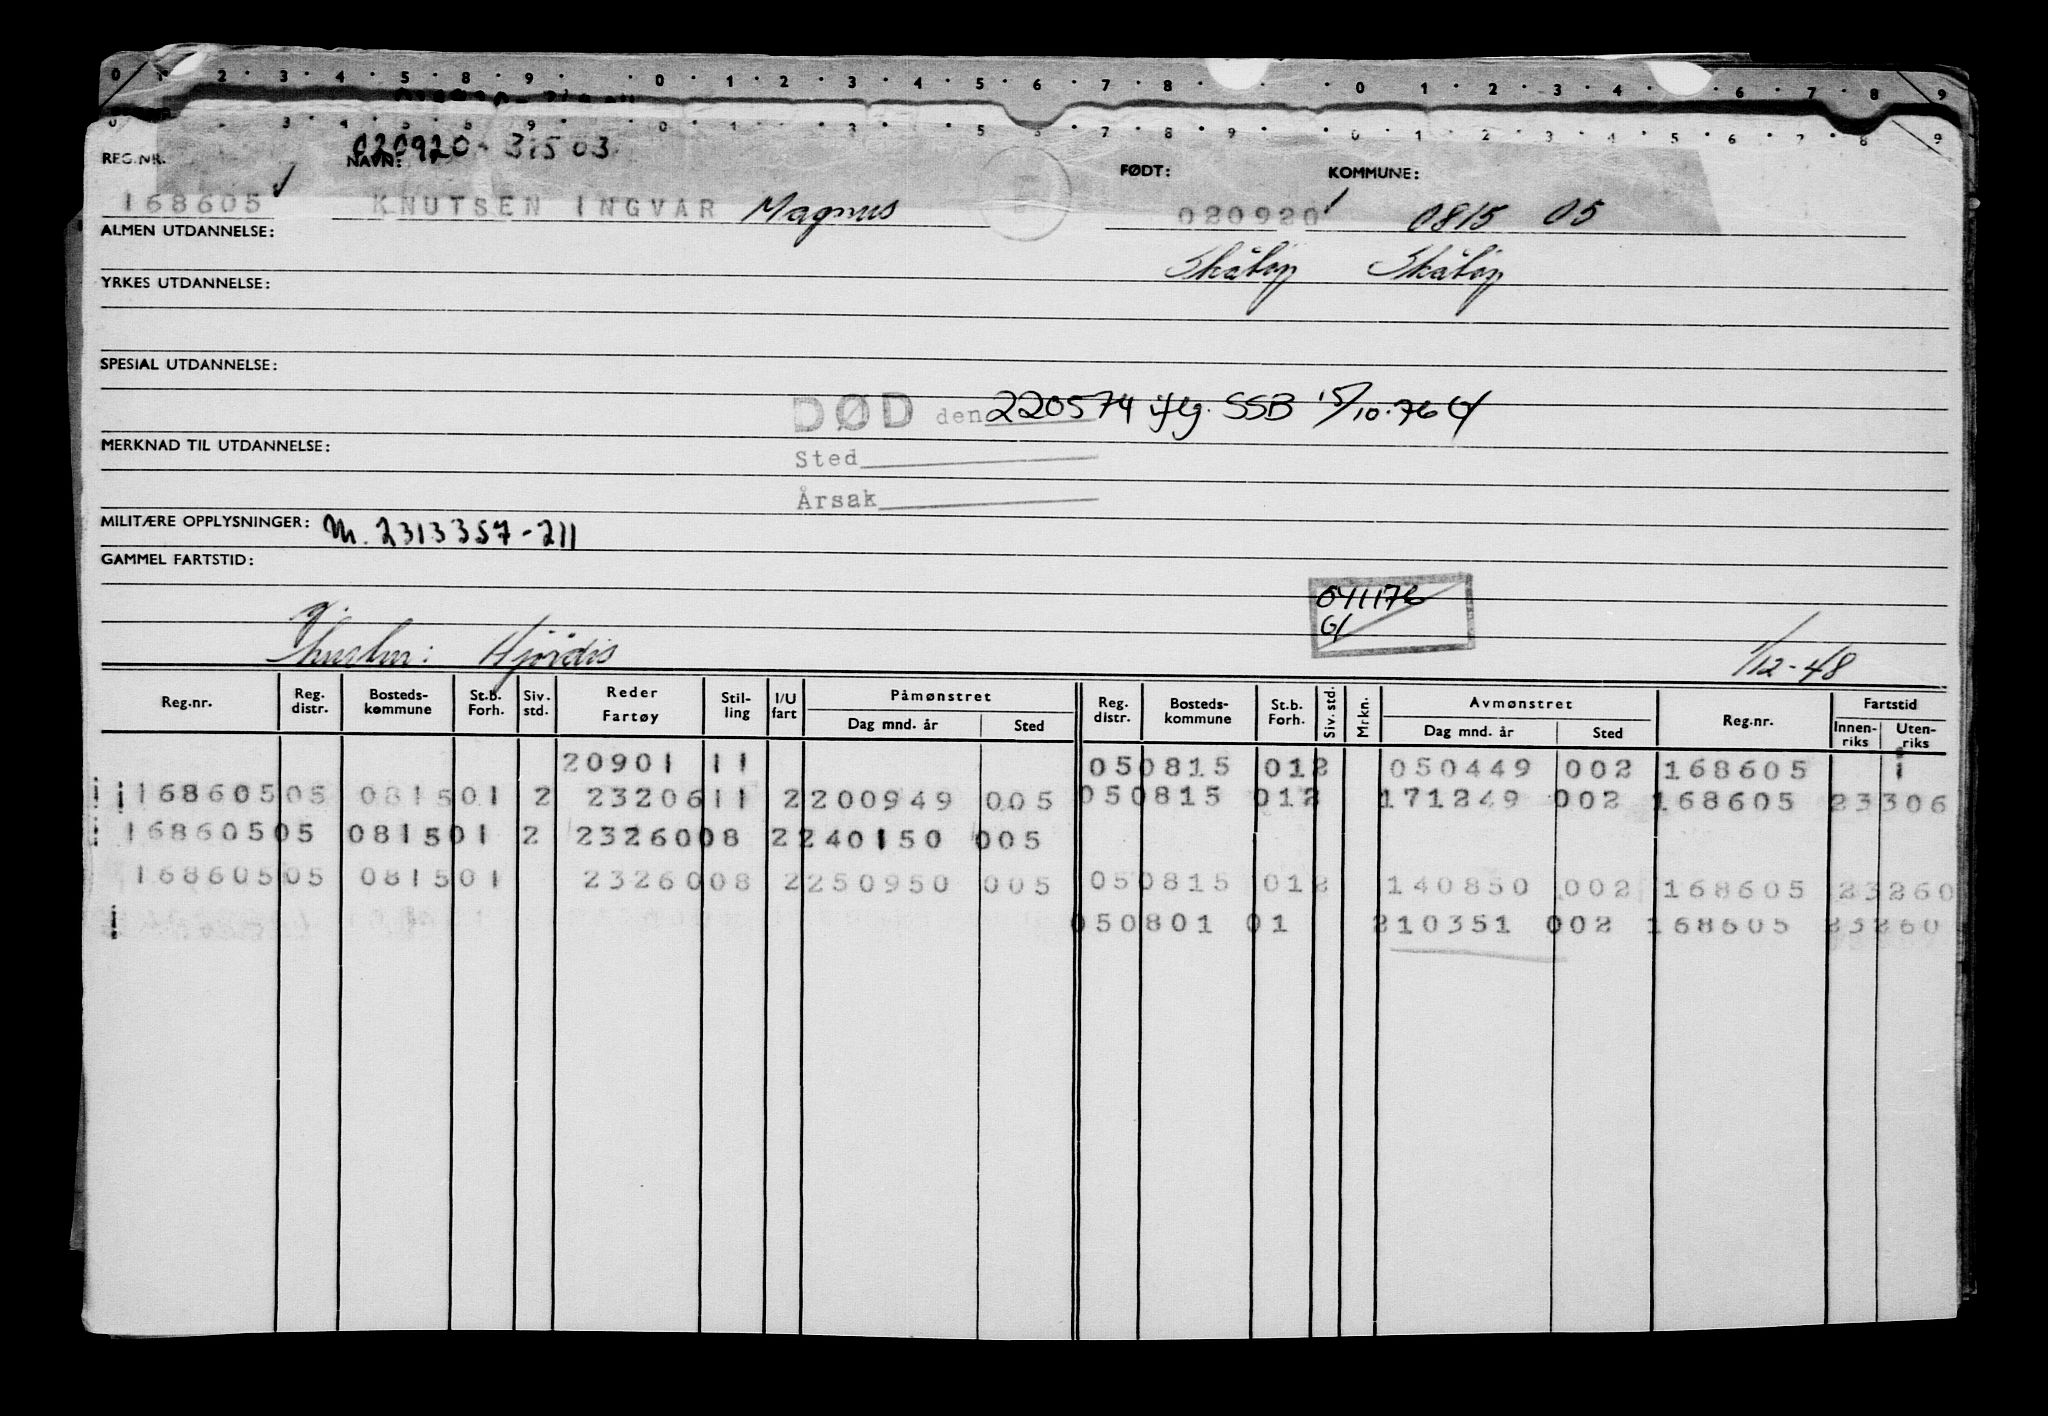 0 1 · 2 · 3 · 4 · 5 · 8 · 9 · · 0 · 1 · 2 · 3 · 4 · 5 · 6 · 7 · 8 · · · 0 · 1 · 2 · 3 · 4 · · 6 · 7 · 8 · 9
3 · 4 · 5 · · 0 · 1 · · 3 · · 5 6 · 7 · 8 · 9 · · 0 · 1 · 2 · 3 · 4 · 5 · 6 · 7 · 8 · 9
020920 - 31503
REG.NR. NAVN: FØDT: KOMMUNE:
168605 KNUTSEN INGVAR Magnus 020920 0815 05
ALMEN UTDANNELSE:
Skåtøy Skåtøy
YRKES UTDANNELSE:
SPESIAL UTDANNELSE:
DØD den 220574 iflg. SSB 15/10-76 G/
MERKNAD TIL UTDANNELSE:
Sted
Årsak
MILITÆRE OPPLYSNINGER: M. 2313357-211
GAMMEL FARTSTID:
041176
G/
g.
Hustru: Hjördis 1/12-48
Reg.nr. Reg. distr. Bosteds-kommune St.b. Forh. Siv. std. Reder Fartøy Stil-ling I/U fart Påmønstret Dag mnd. år Sted Reg. distr. Bosteds-kommune St.b. Forh. Siv. std. Mrkn. Avmønstret Dag mnd. år Sted Reg.nr. Fartstid Innen-riks Uten-riks
20901 11 050815 012 050449 002 168605 1
16860505 081501 2 2320611 2200949 005 050815 012 171249 002 168605 23306
16860505 081501 2 2326008 2240150 005
16860505 081501 2326008 2250950 005 050815 012 140850 002 168605 23260
050801 01 210351 002 168605 23260